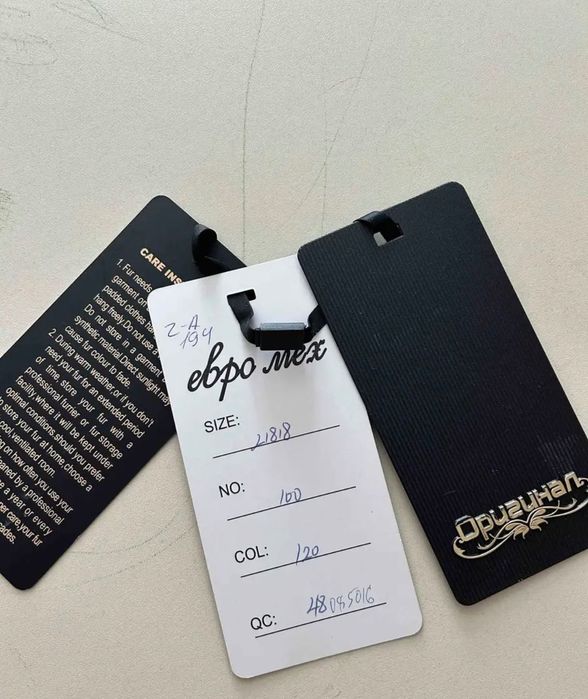 CARE INS
1. Fur needs
garment on
padded clothes ha
hang freely.Do not use a
Do not store in a garment
synthetic material.Direct sunlight may
cause fur colour to fade.
2. During warm weather,or if you don't
need your fur for an extended period
or time, store your fur with a
professional furrier or fur storage
facility where it will be kept under
optimal conditions.should you prefer
to store your fur at home,choose a
cool,ventilated room.
ng on how often you use your
eaned by a professional
e a year or every
per care,your fur
cades.
Z-A
194
евро мех
SIZE: 21818
NO: 100
COL: 120
QC: 48085016
Оригинал